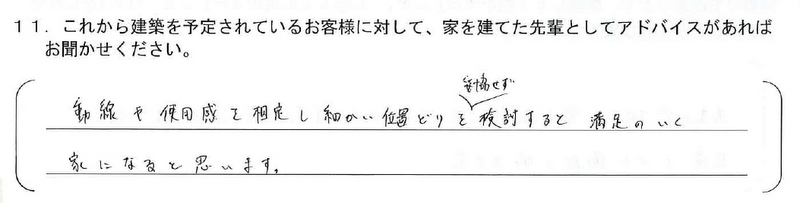 11．これから建築を予定されているお客様に対して、家を建てた先輩としてアドバイスがあれば
お聞かせください。
妥協せず
動線や使用感を想定し細かい位置どりを検討すると満足のいく
家になると思います。